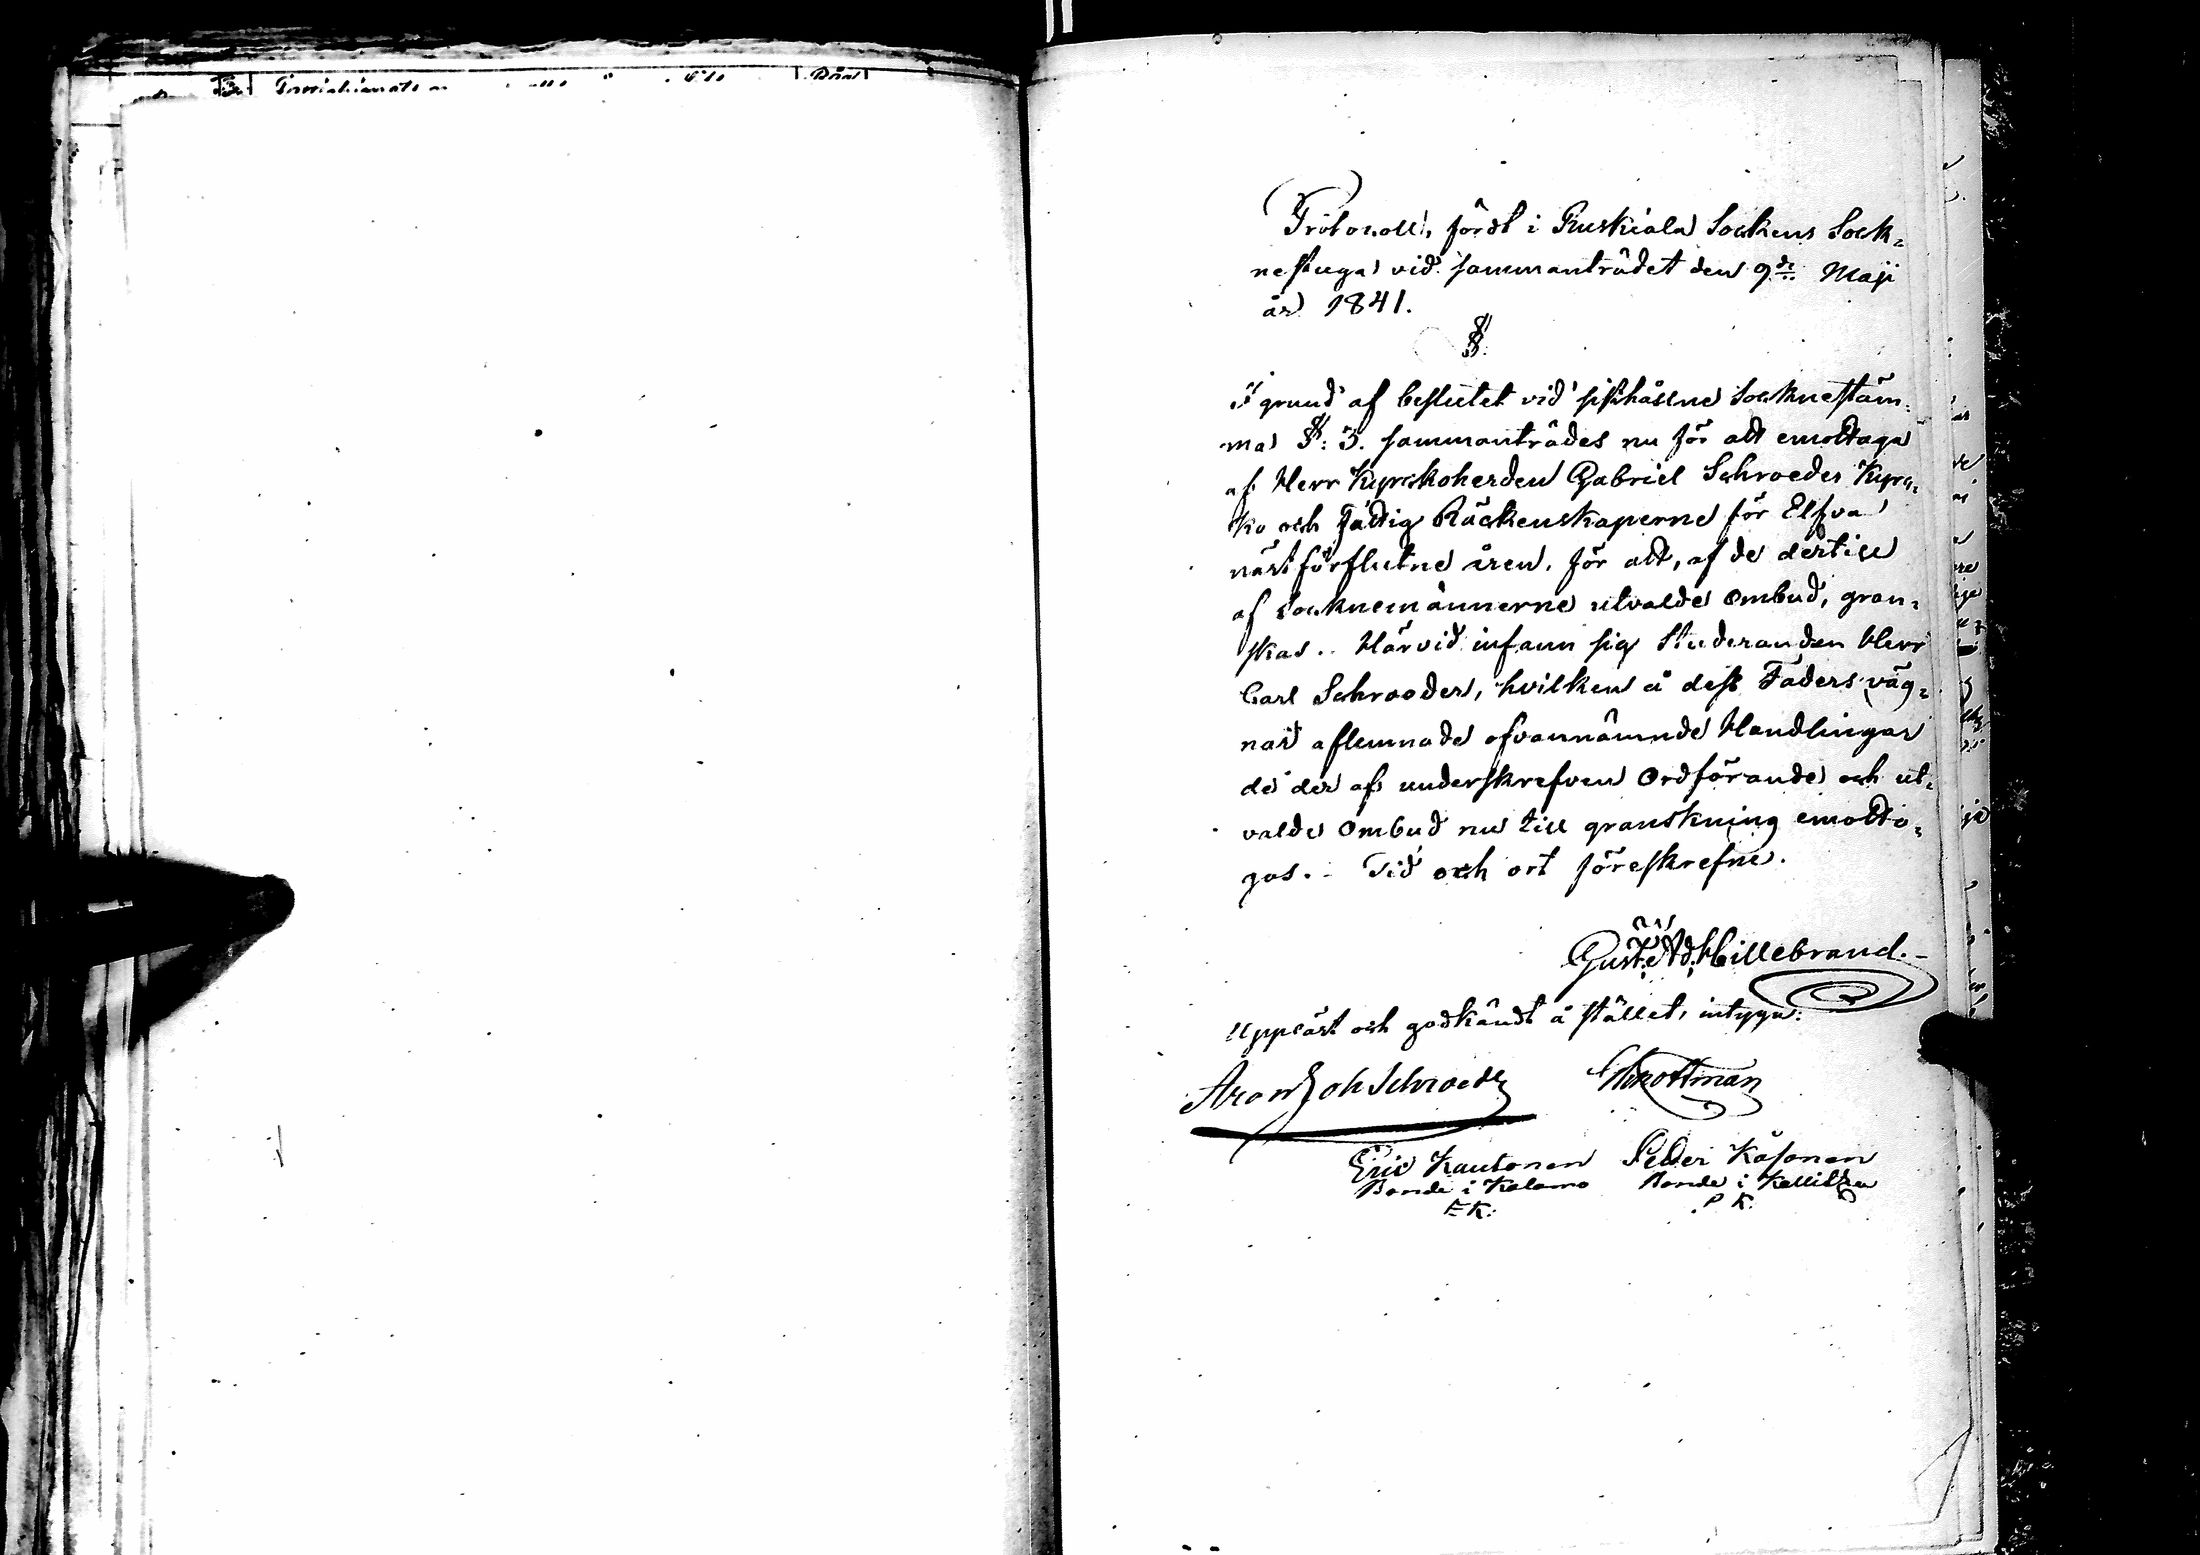 Protokoll, fördt i Ruskiala Sockens Sock=
nestuga vid sammanträdet den 9de Maji
år 1841.
§.
I grund af beslutet vid sisthållne Socknestäm=
ma §: 3. sammanträdes nu för att emottaga
af Herr Kyrckoherden Gabriel Schroeder Kyrc=
ko och Fattig Räckenskaperne för Elfva
nästförflutne åren, för att, af de dertill
af Socknemännerne utvalde Ombud, gran=
skas. Härvid infann sig Studeranden Herr
Carl Schroeder, hvilken å dess Faders väg=
nar aflemnade ofvannämnde Handlingar
de der af underskrefven Ordförande och ut=
valde Ombud nu till granskning emotto=
gos. - Tid och ort föreskrefne.
Gust: Ad: Hillebrand. -
Uppläst och godkändt å stället, intyga:
Aron Joh Schroeder
Eric Kautonen Peder Käsonen
Bonde i Kalamo Bonde i
EK. P K.